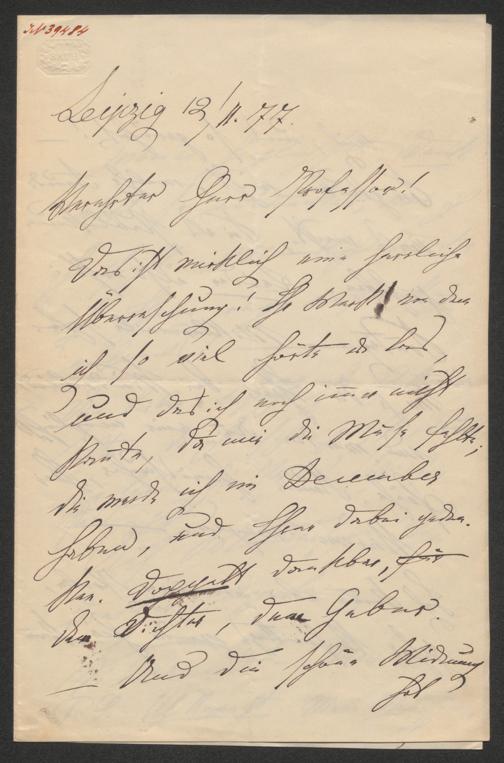 JN 39484
Leipzig 12/11.77.
Verehrter Herr Professor!
Das ist wirklich eine herrliche
Überraschung! Ihr Werk, von dem
ich so viel hörte u las,
und das ich noch immer nicht
kannte, da mir die Muße fehlte;
die werde ich im December
haben, und Ihrer dabei geden-
ken. Doppelt dankbar, für
dem Dichter, dem Geber.
Und die schöne Widmung
hat